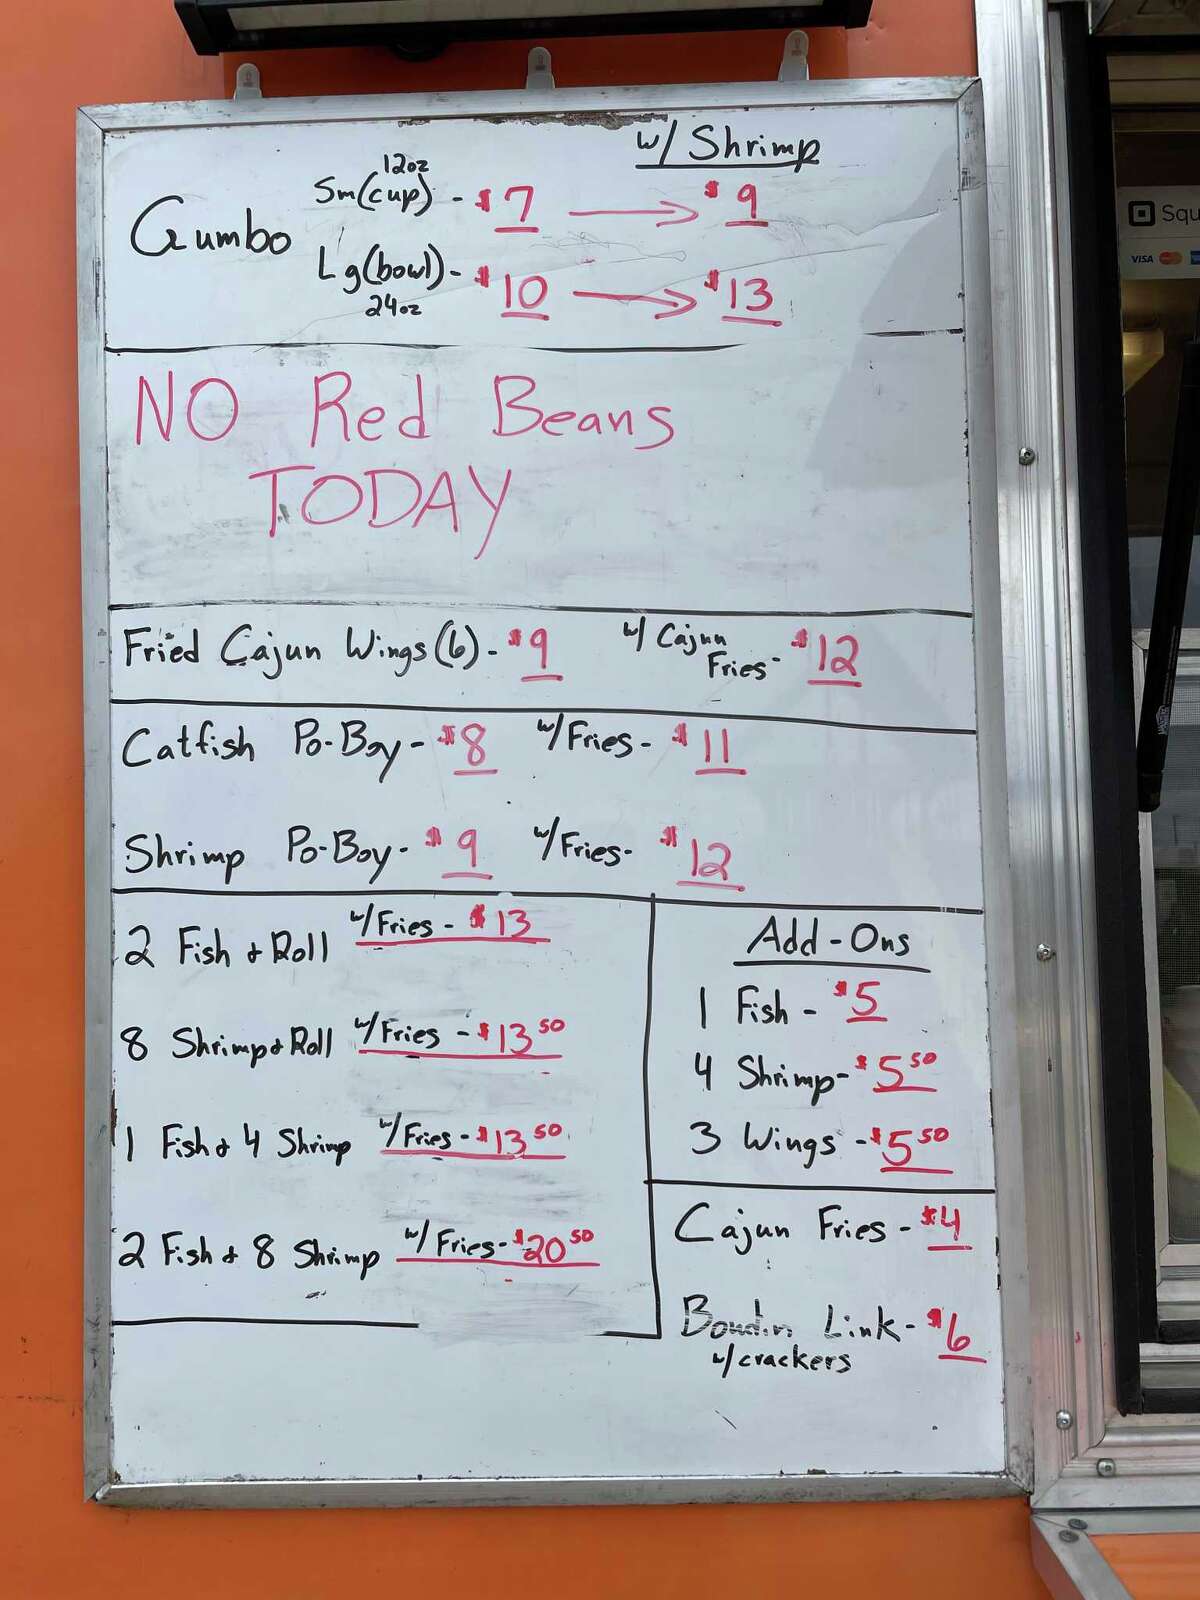 w/ Shrimp
Gumbo
12oz
Sm(cup) - $7 → $9
Lg(bowl) - $10 → $13
24oz
NO Red Beans
TODAY
Fried Cajun Wings (6) - $9 w/ Cajun Fries - $12
Catfish Po-Boy - $8 w/Fries - $11
Shrimp Po-Boy - $9 w/Fries - $12
2 Fish & Roll w/Fries - $13
8 Shrimp & Roll w/Fries - $13 50
1 Fish & 4 Shrimp w/Fries - $13 50
2 Fish & 8 Shrimp w/Fries - $20 50
Add-Ons
1 Fish - $5
4 Shrimp - $5 50
3 Wings - $5 50
Cajun Fries - $4
Boudin Link - $6
w/crackers
Squ
VISA